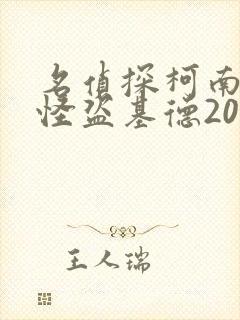 名侦探柯南
怪盗基德20
王人瑞